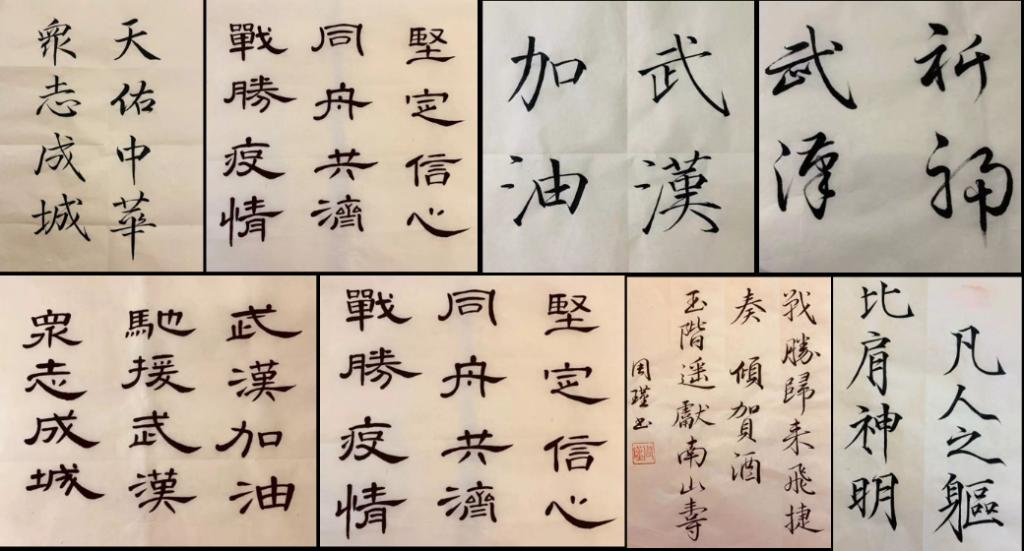 天佑中華
眾志成城
堅定信心
同舟共濟
戰勝疫情
武漢
加油
祈福
武漢
武漢加油
馳援武漢
眾志成城
堅定信心
同舟共濟
戰勝疫情
戰勝歸来飛捷
奏傾加賀酒
玉階遥獻南山壽
周瑾书
凡人之軀
比肩神明